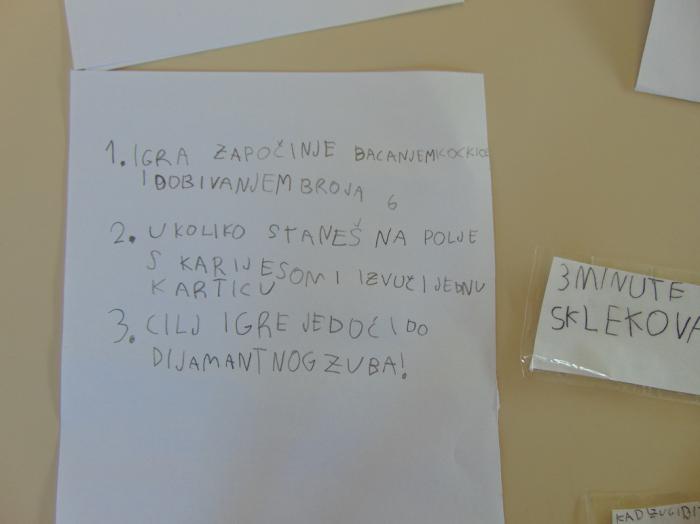 1. IGRA ZAPOČINJE BACANJEM KOCKICE
I DOBIVANJEM BROJA 6
2. UKOLIKO STANEŠ NA POLJE
S KARIJESOM I IZVUČI JEDNU
KARTICU
3. CILJ IGRE JE DOĆI DO
DIJAMANTNOG ZUBA!
3 MINUTE
SKLEKOVA